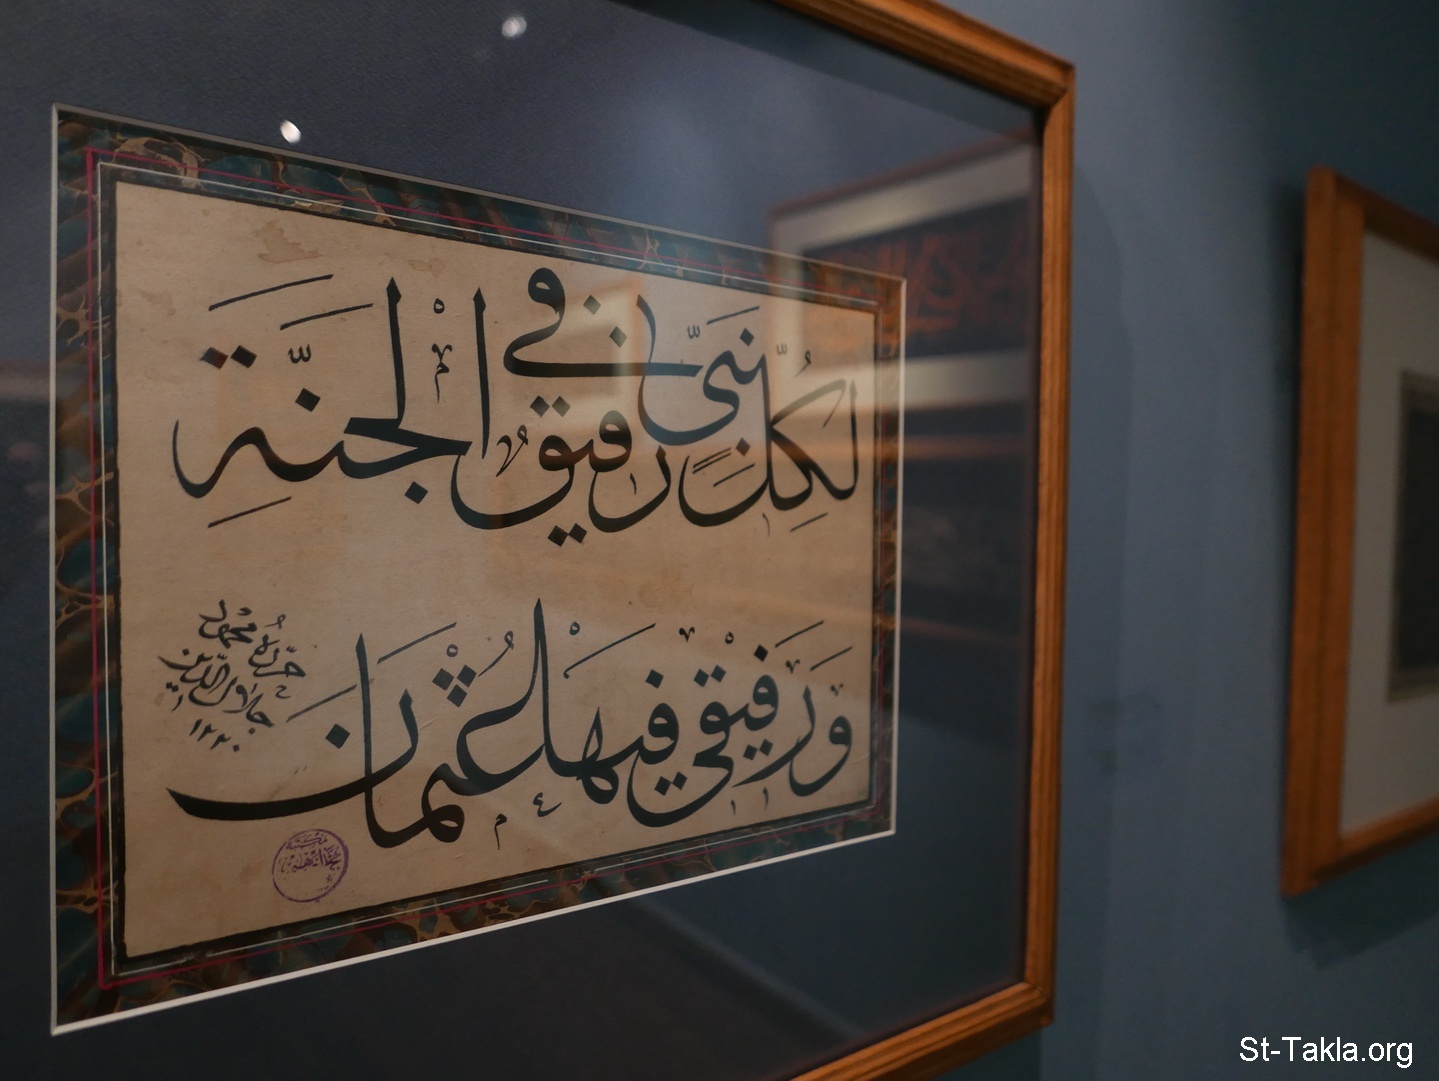 لكل نبي رفيق في الجنة
ورفيقي فيها عثمان
حرره محمود
جلال الدين
١٢٢٠
مكتبة
St-Takla.org